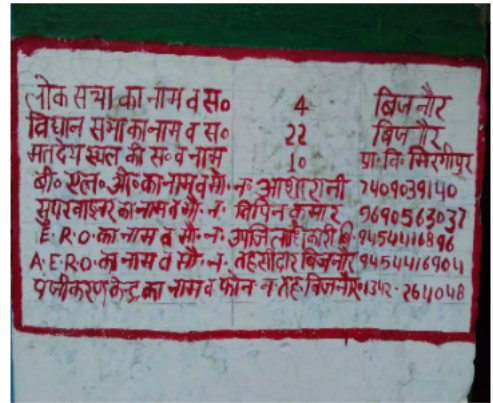 लोक सभा का नाम व स० 4 बिजनौर
विधान सभा का नाम व स० 22 बिजनौर
मतदेय स्थल की स० व नाम 10 प्रा० वि० मिरगीपुर
बी० एल० ओ० का नाम व मो० न० आशा रानी 7409039140
सुपरवाइजर का नाम व मो० न० विपिन कुमार 9690563037
E.R.O. का नाम व मो० न० उपजिलाधिकारी बि० 9454416896
A.E.R.O. का नाम व मो० न० तहसीलदार बिजनौर 9454416904
पंजीकरण केन्द्र का नाम व फोन न० तह० बिजनौर 01342-264048